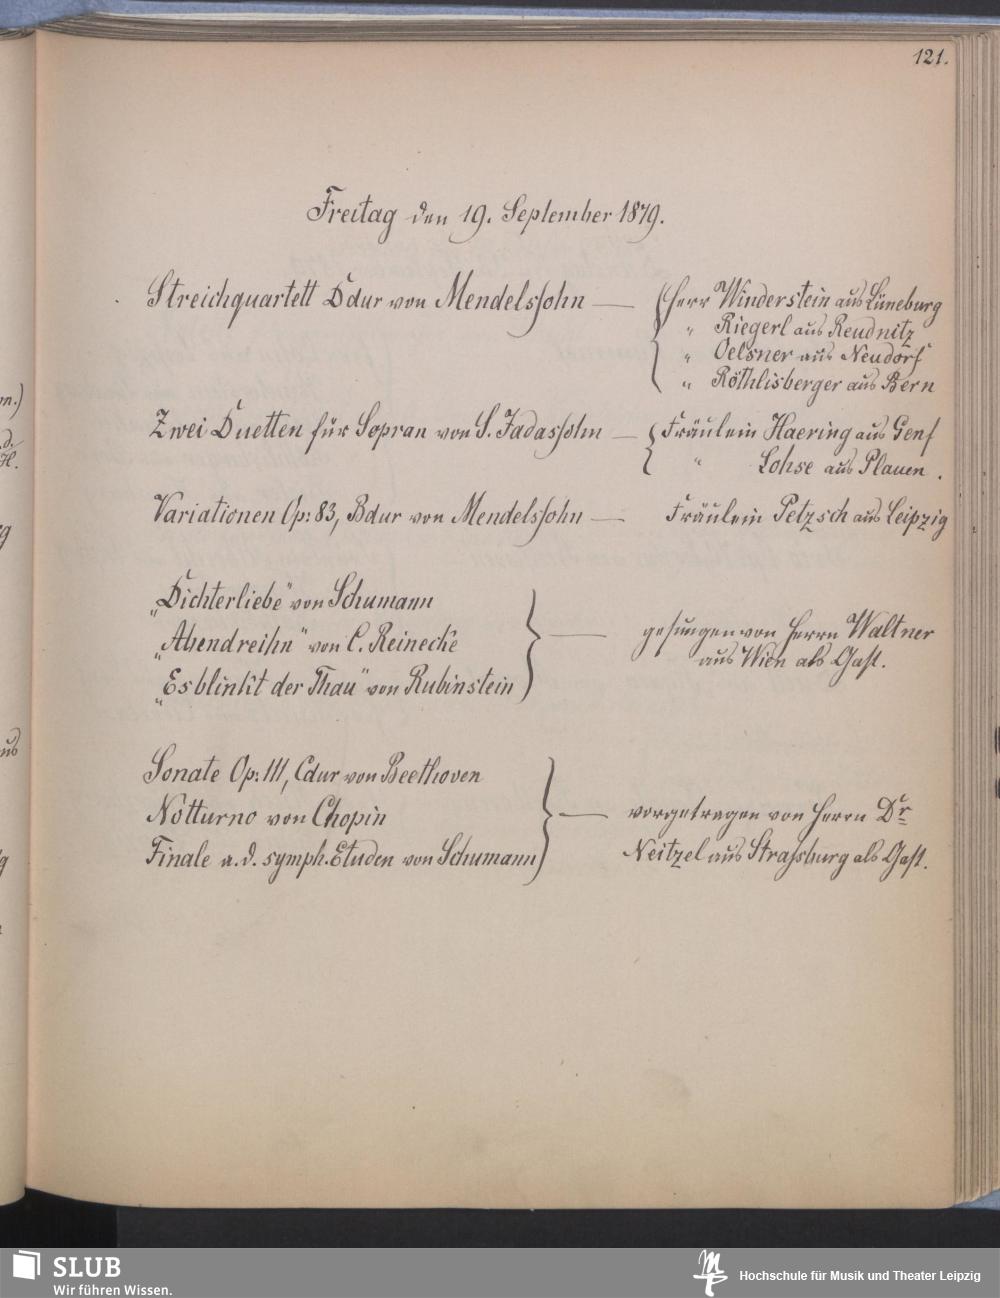 121.
Freitag den 19. September 1879.
Streichquartett Ddur von Mendelssohn — Herr Winderstein aus Lüneburg
" Riegerl aus Reudnitz
" Oelsner aus Neudorf
" Röthlisberger aus Bern
Zwei Duetten für Sopran von S. Jadassohn — Fräulein Haering aus Genf
" Lohse aus Plauen.
Variationen Op: 83, Bdur von Mendelssohn — Fräulein Petzsch aus Leipzig
„Dichterliebe" von Schumann
„Abendreihn" von C. Reinecke
„Es blinkt der Thau" von Rubinstein
— gesungen von Herrn Waltner
aus Wien als Gast.
Sonate Op: 111, Cdur von Beethoven
Notturno von Chopin
Finale a. d. symph. Etuden von Schumann
— vorgetragen von Herrn Dr
Neitzel aus Strassburg als Gast.
n.)
d.
H.
g
us
SLUB
Wir führen Wissen.
Hochschule für Musik und Theater Leipzig